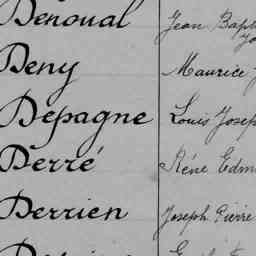 Denoual Jean Bapt
Deny Maurice J
Depagne Louis Josep
Derré Réné Edm
Derrien Joseph Pierre